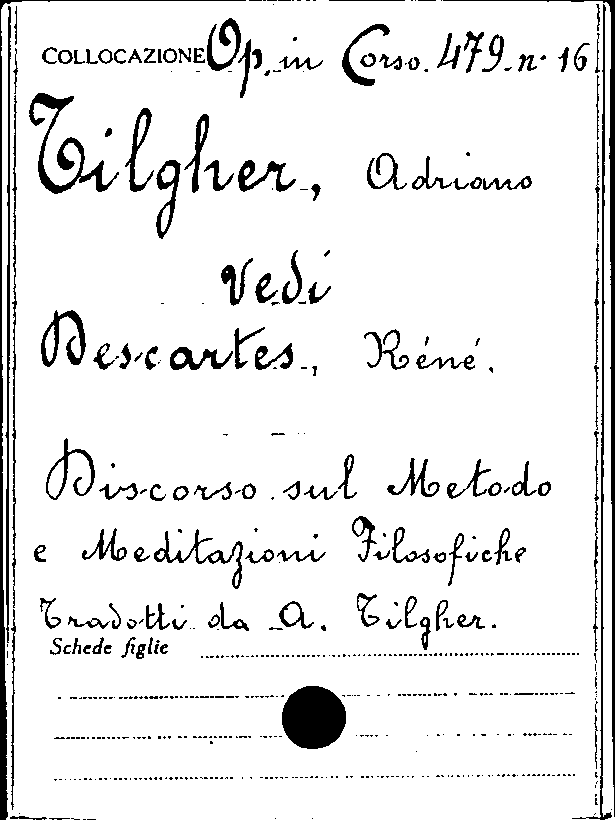 COLLOCAZIONE Op. in Corso. 479. n. 16
Tilgher, Adriano
Vedi
Descartes, Réné.
Discorso sul Metodo
e Meditazioni Filosofiche
Tradotti da A. Tilgher.
Schede figlie